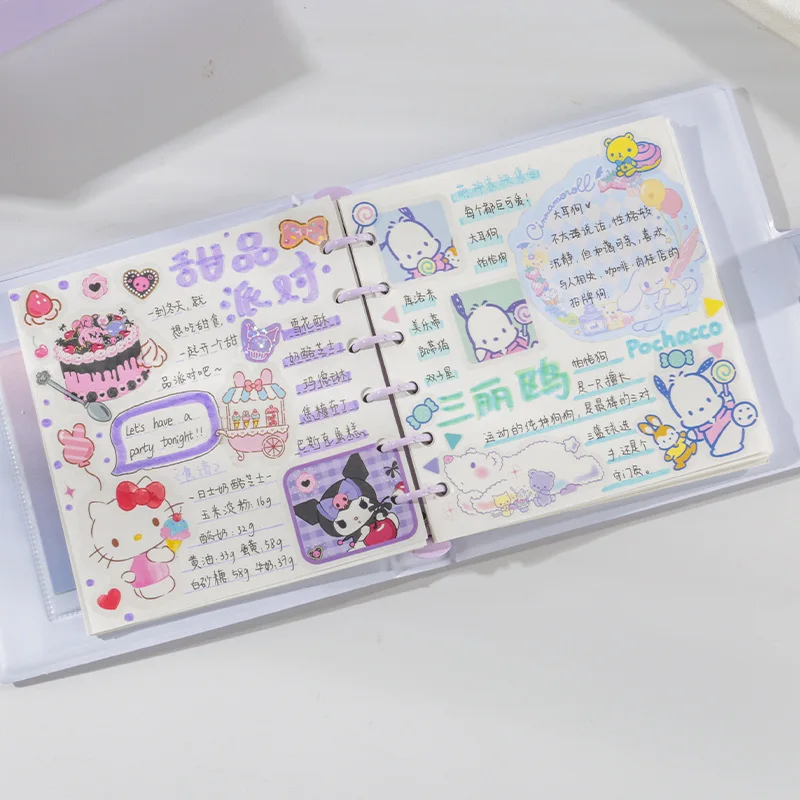 甜品
派对
一到冬天，就
想吃甜食，
一起开个甜
品派对吧～
雪花酥、
奶酪芝士、
玛德琳、
焦糖布丁、
巴斯克蛋糕、
Let's have a
party tonight!!
食谱
日式奶酪芝士
玉米淀粉：16g
酸奶：32g
黄油：33g 蛋黄：58g
白砂糖：58g 牛奶：37g
每个都巨可爱！
大耳狗
帕恰狗
库洛米
美乐蒂
双子星
三丽鸥
Cinnamoroll
大耳狗♥
不太爱说话，性格较
沉静，但和蔼可亲，喜欢
与人相处、咖啡
招牌狗
Pochacco
帕恰狗
是一只擅长
运动的纯种狗狗，是最棒的三对
三篮球选
手，还是个
守门员。